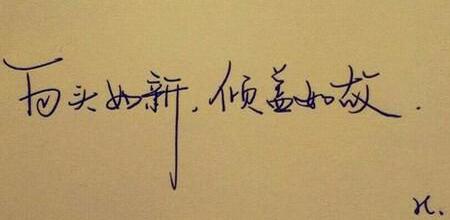 百头如新,倾盖如故.